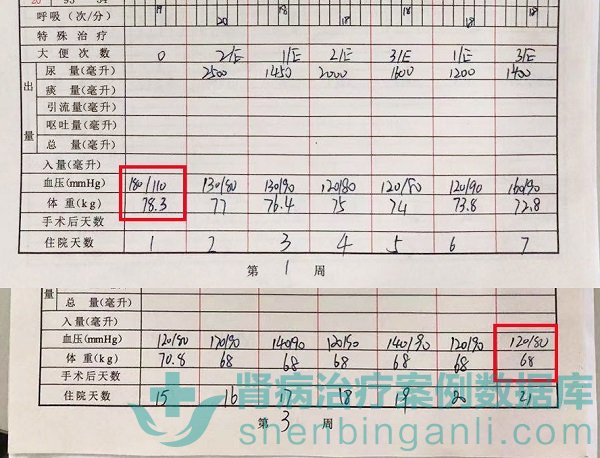 呼吸(次/分) 19 20 18 18 18 18
特殊治疗
大便次数 0 2/E 1/E 2/E 3/E 1/E 3/E
出量
尿量(毫升) 2500 1450 2000 1600 1200 1400
痰量(毫升)
引流量(毫升)
呕吐量(毫升)
总量(毫升)
入量(毫升)
血压(mmHg) 180/110 130/80 130/90 120/80 120/80 120/90 160/90
体重(kg) 78.3 77 76.4 75 74 73.8 72.8
手术后天数
住院天数 1 2 3 4 5 6 7
第 1 周
量 总量(毫升)
入量(毫升)
血压(mmHg) 120/80 120/90 140/90 120/90 140/90 120/90 120/80
体重(kg) 70.8 68 68 68 68 68 68
手术后天数
住院天数 15 16 17 18 19 20 21
第 3 周
肾病治疗案例数据库
shenbinganli.com